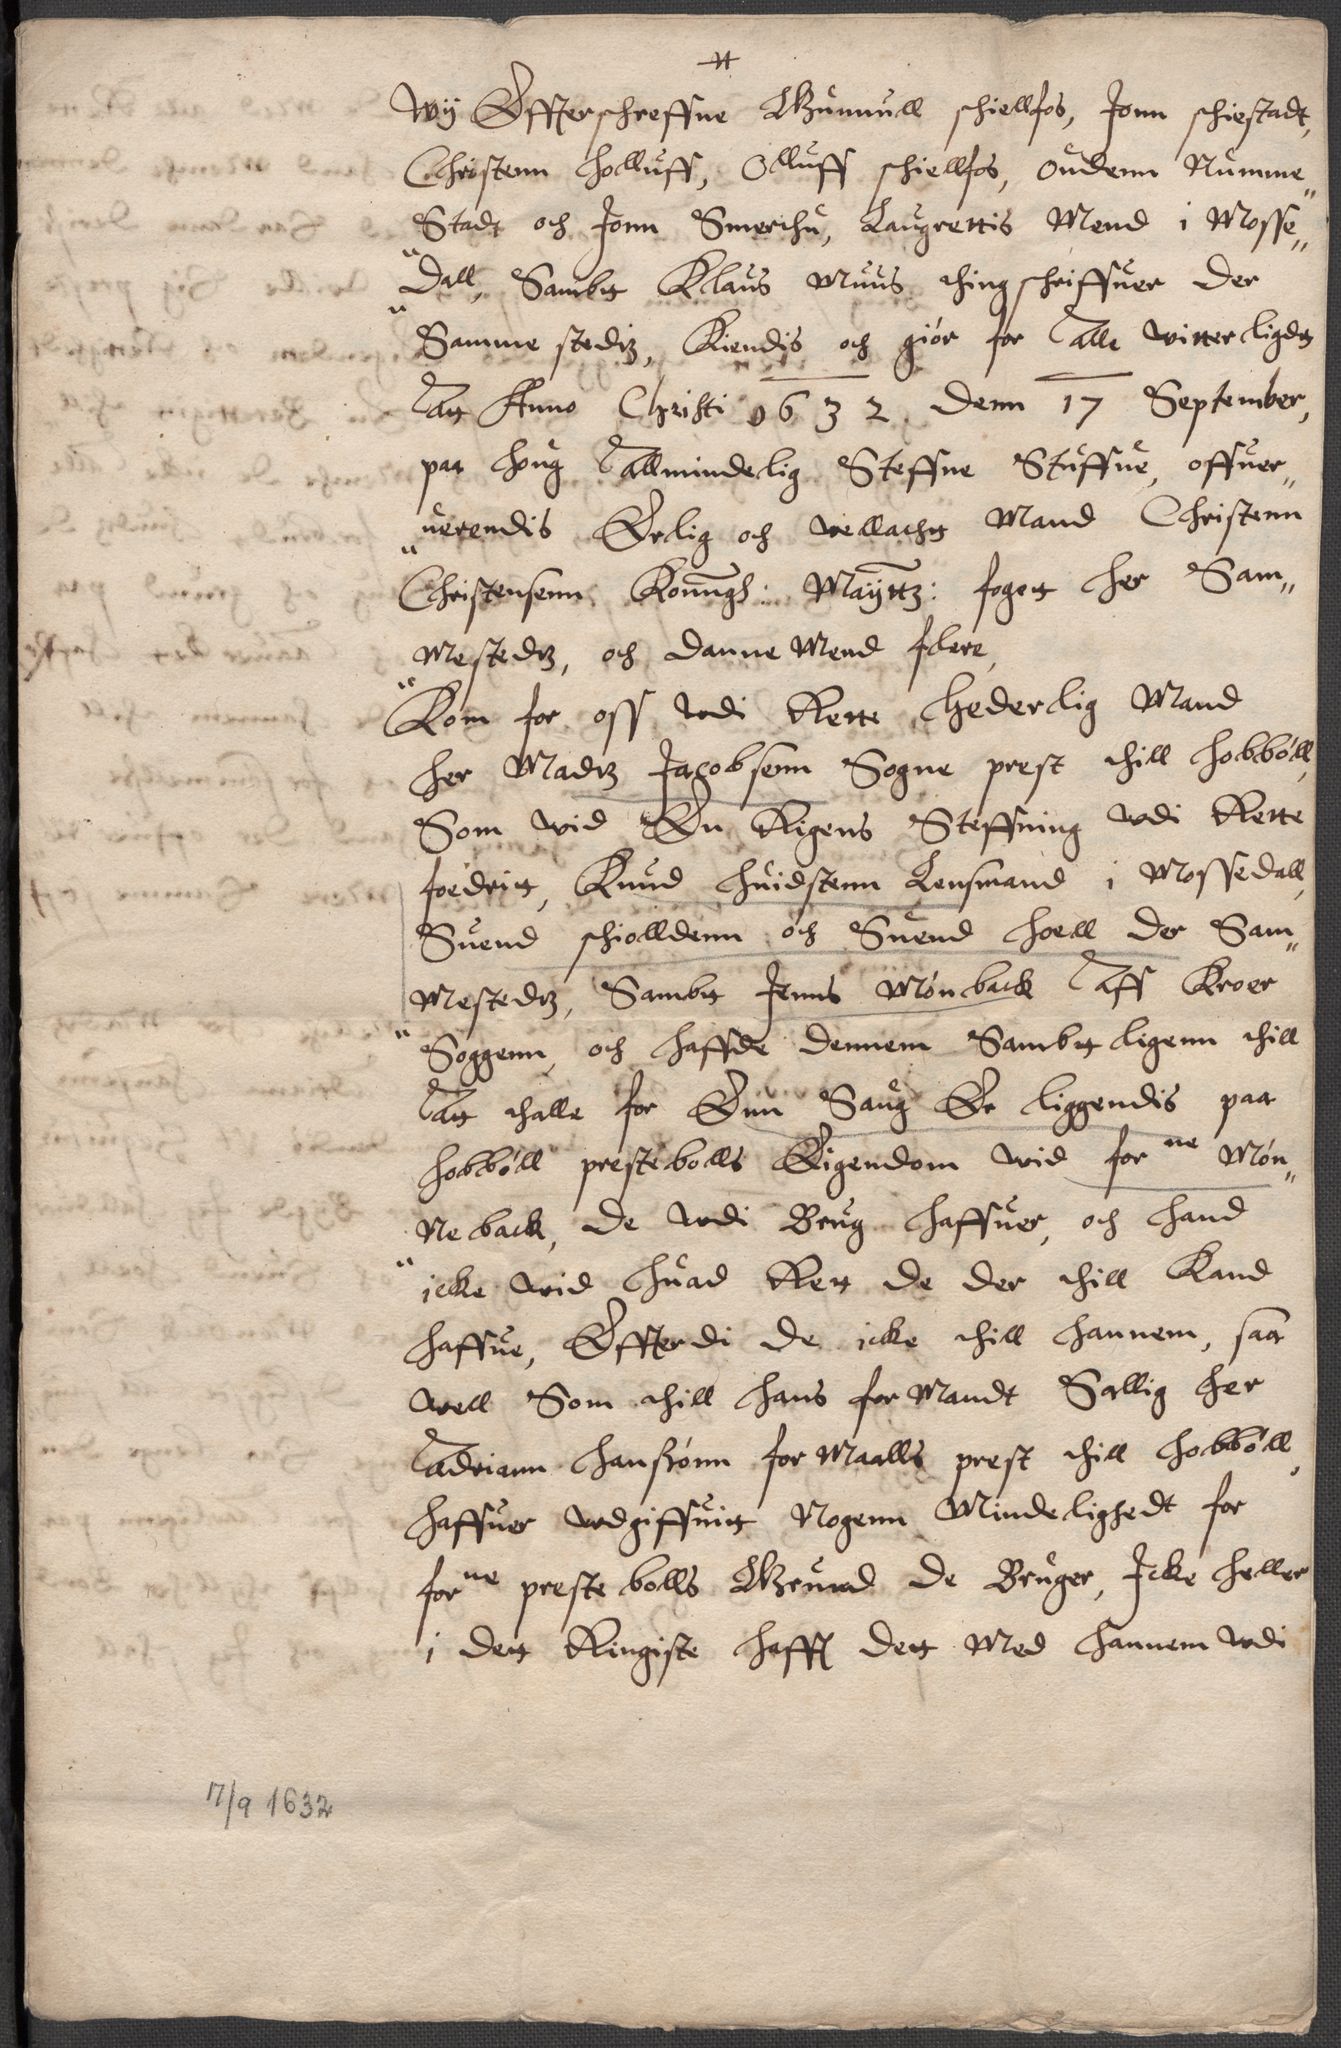 Wij Effterschreffne Gunnull schiellfos, Jonn schiestadt,
Christenn holluff, Olluff schiellfos, Oudenn Numme„
Stadt och Jonn Smerthu, Laugrettis Mend i Mosse„
“Dall, Sambt Klaus Muus thingschriffuer der
“Samme stedtz, Kiendis och giør for Alle witterligdt
Att Anno Christi 1632 denn 17 September,
paa houg Allmindelig Steffne Stuffue, offuer„
“uerendis Erlig och vellacht Mand Christenn
Christensenn Konngl: Mayttz: fogett her Sam„
Mestedtz, och danne Mend flere,
“Kom for oss udi Rette hederlig Mand
her Madtz Jacobsenn Sogne prest thill hobbøll,
Som wid En Rigens Steffning udi Rette
foedritt, Knud huidstenn Lensmand i Mossedall,
Suend schiolldenn och Suend hoell der Sam„
Mestedtz, Sambt Jenns Mønback Aff Kroer
“Soggenn, och haffde dennem Sambtligenn thill
Att thalle for Enn Saug Er liggendis paa
hobbøll prestebolls Eigendom wid forne Møn„
Neback, de udi Brug haffuer, och hand
“icke wid huad Rett de der thill Kand
haffue, Effterdi de icke thill hannem, saa
well Som thill hans forMandt Sallig her
Adriann hanssønn forMaalls prest thill hobbøll,
haffuer udgiffuitt Nogenn Mindelighedt for
forne prestebolls Grund de Bruger, Icke heller
i dett Ringiste haffr dett Med hannem udi
17/9 1632